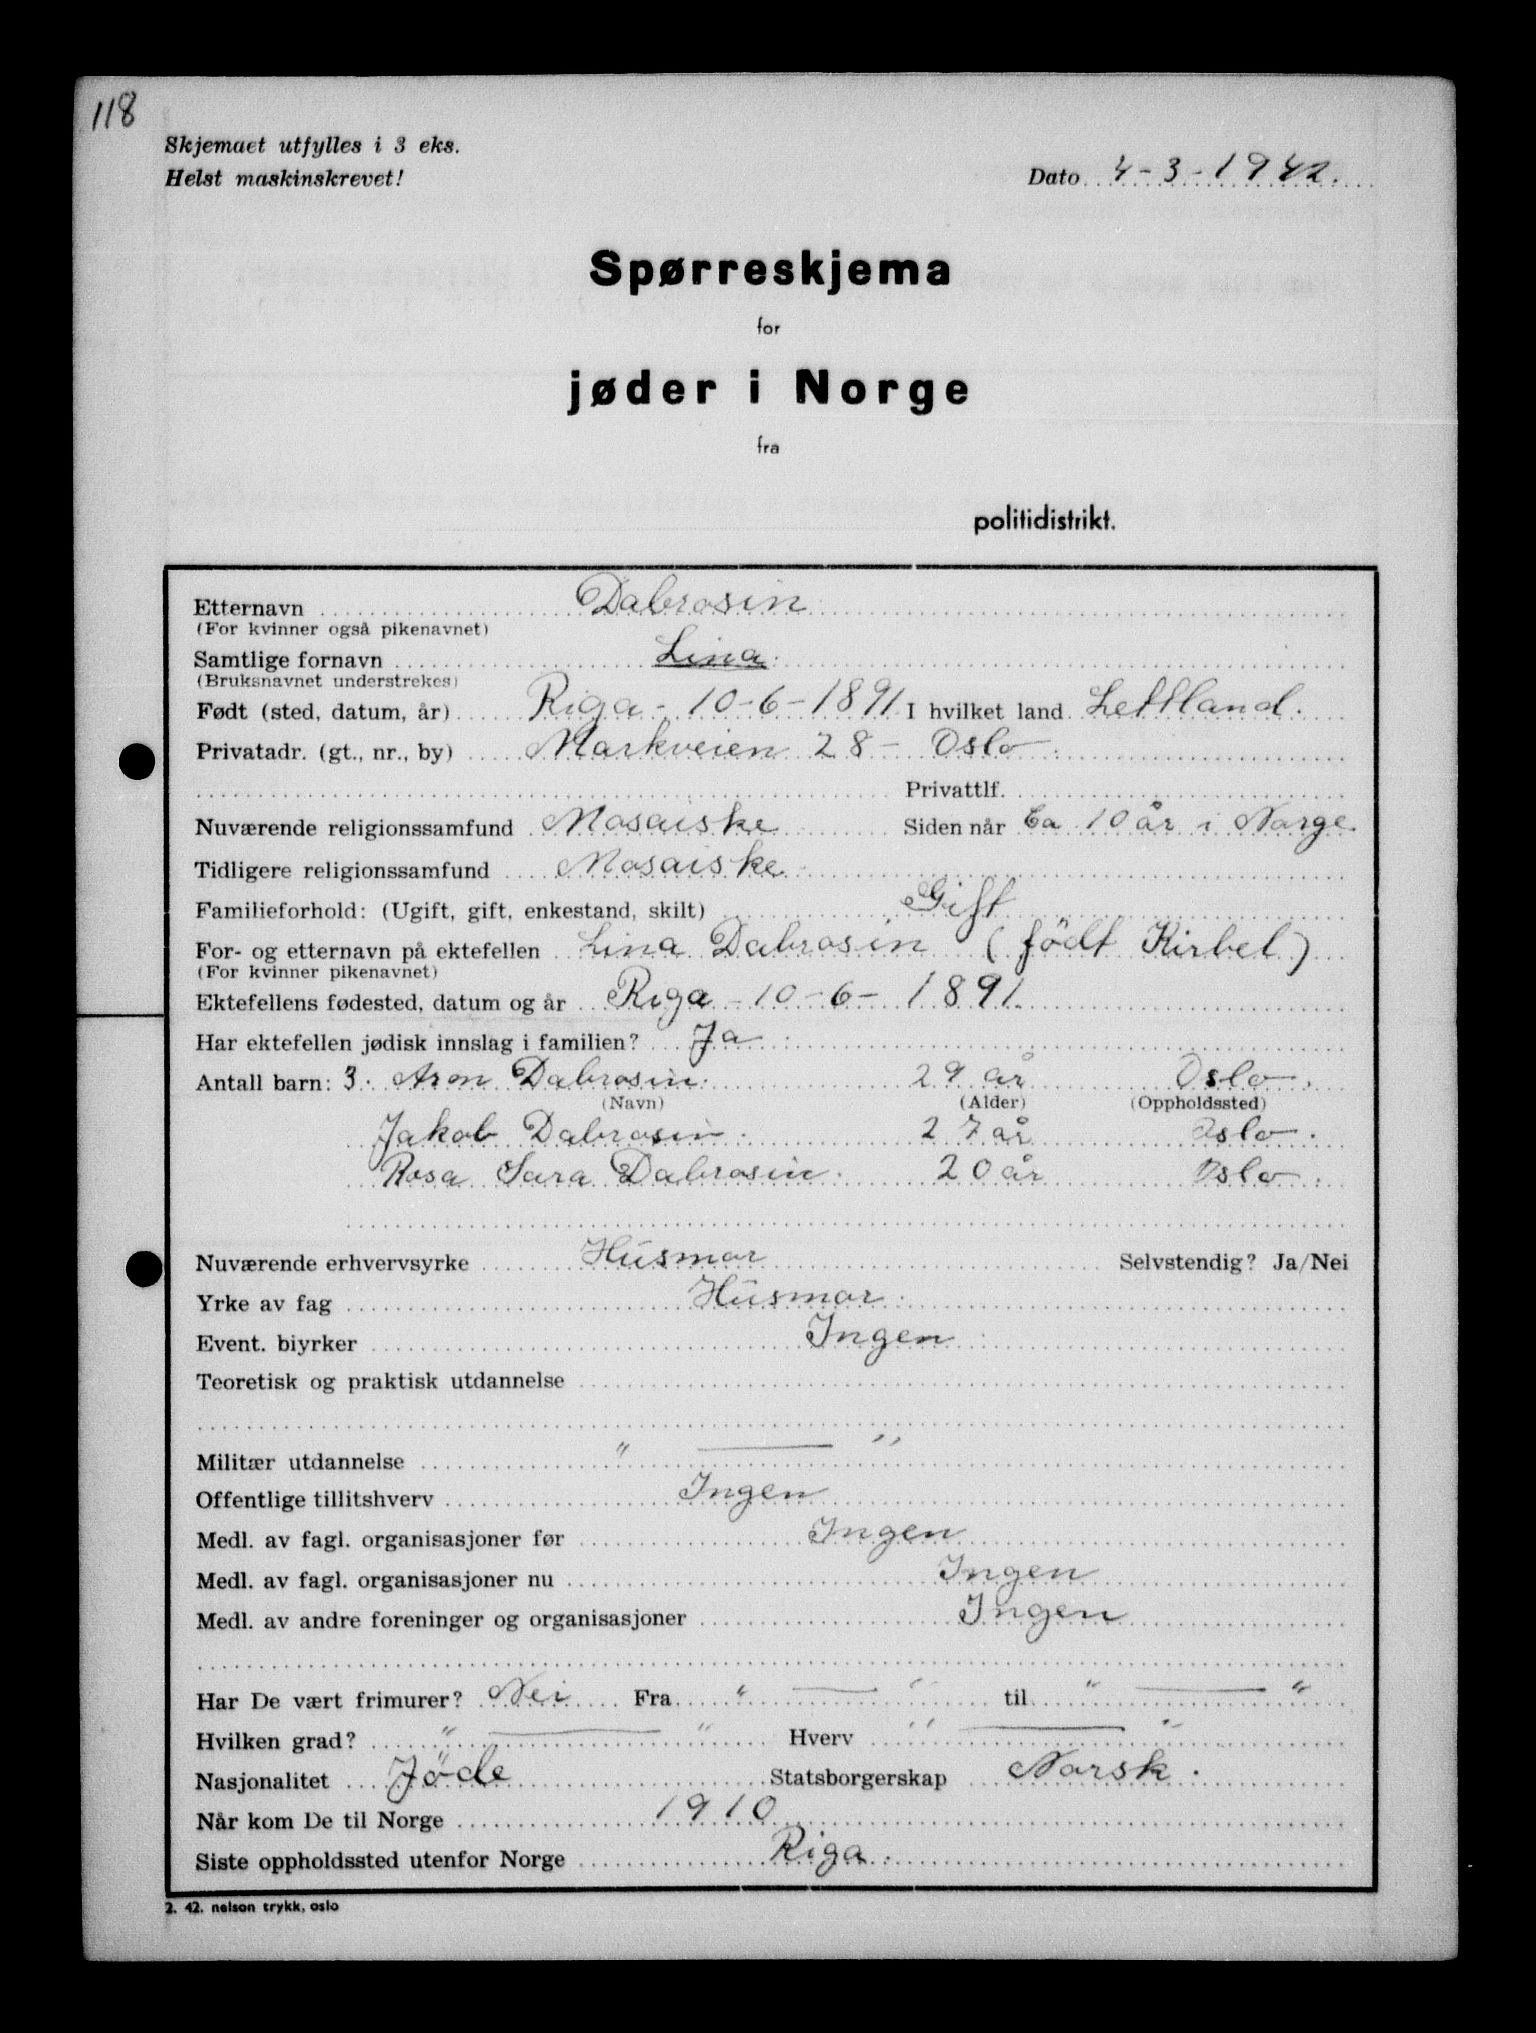 118
Skjemaet utfylles i 3 eks.
Helst maskinskrevet!
Dato 4-3-1942.
Spørreskjema
for
jøder i Norge
fra
politidistrikt.
Etternavn Dabrosin
(For kvinner også pikenavnet)
Samtlige fornavn Lina.
(Bruksnavnet understrekes)
Født (sted, datum, år) Riga - 10-6-1891 I hvilket land Lettland.
Privatadr. (gt., nr., by) Markveien 28 - Oslo.
Privattlf.
Nuværende religionssamfund Mosaiske Siden når Ca 10 år i Norge.
Tidligere religionssamfund Mosaiske
Familieforhold: (Ugift, gift, enkestand, skilt) Gift
For- og etternavn på ektefellen Lina Dabrosin (født Kirbel)
(For kvinner pikenavnet)
Ektefellens fødested, datum og år Riga - 10-6-1891.
Har ektefellen jødisk innslag i familien? Ja
Antall barn: 3. Aron Dabrosin. 29 år Oslo.
(Navn) (Alder) (Oppholdssted)
Jakob Dabrosin. 27 år Oslo.
Rosa Sara Dabrosin. 20 år Oslo.
Nuværende erhvervsyrke Husmor Selvstendig? Ja/Nei
Yrke av fag Husmor.
Event. biyrker Ingen
Teoretisk og praktisk utdannelse
Militær utdannelse " — "
Offentlige tillitshverv Ingen
Medl. av fagl. organisasjoner før Ingen
Medl. av fagl. organisasjoner nu Ingen
Medl. av andre foreninger og organisasjoner Ingen
Har De vært frimurer? Nei Fra " — " til " — "
Hvilken grad? " — " Hverv " — "
Nasjonalitet Jøde Statsborgerskap Norsk.
Når kom De til Norge 1910
Siste oppholdssted utenfor Norge Riga.
2. 42. nelson trykk, oslo